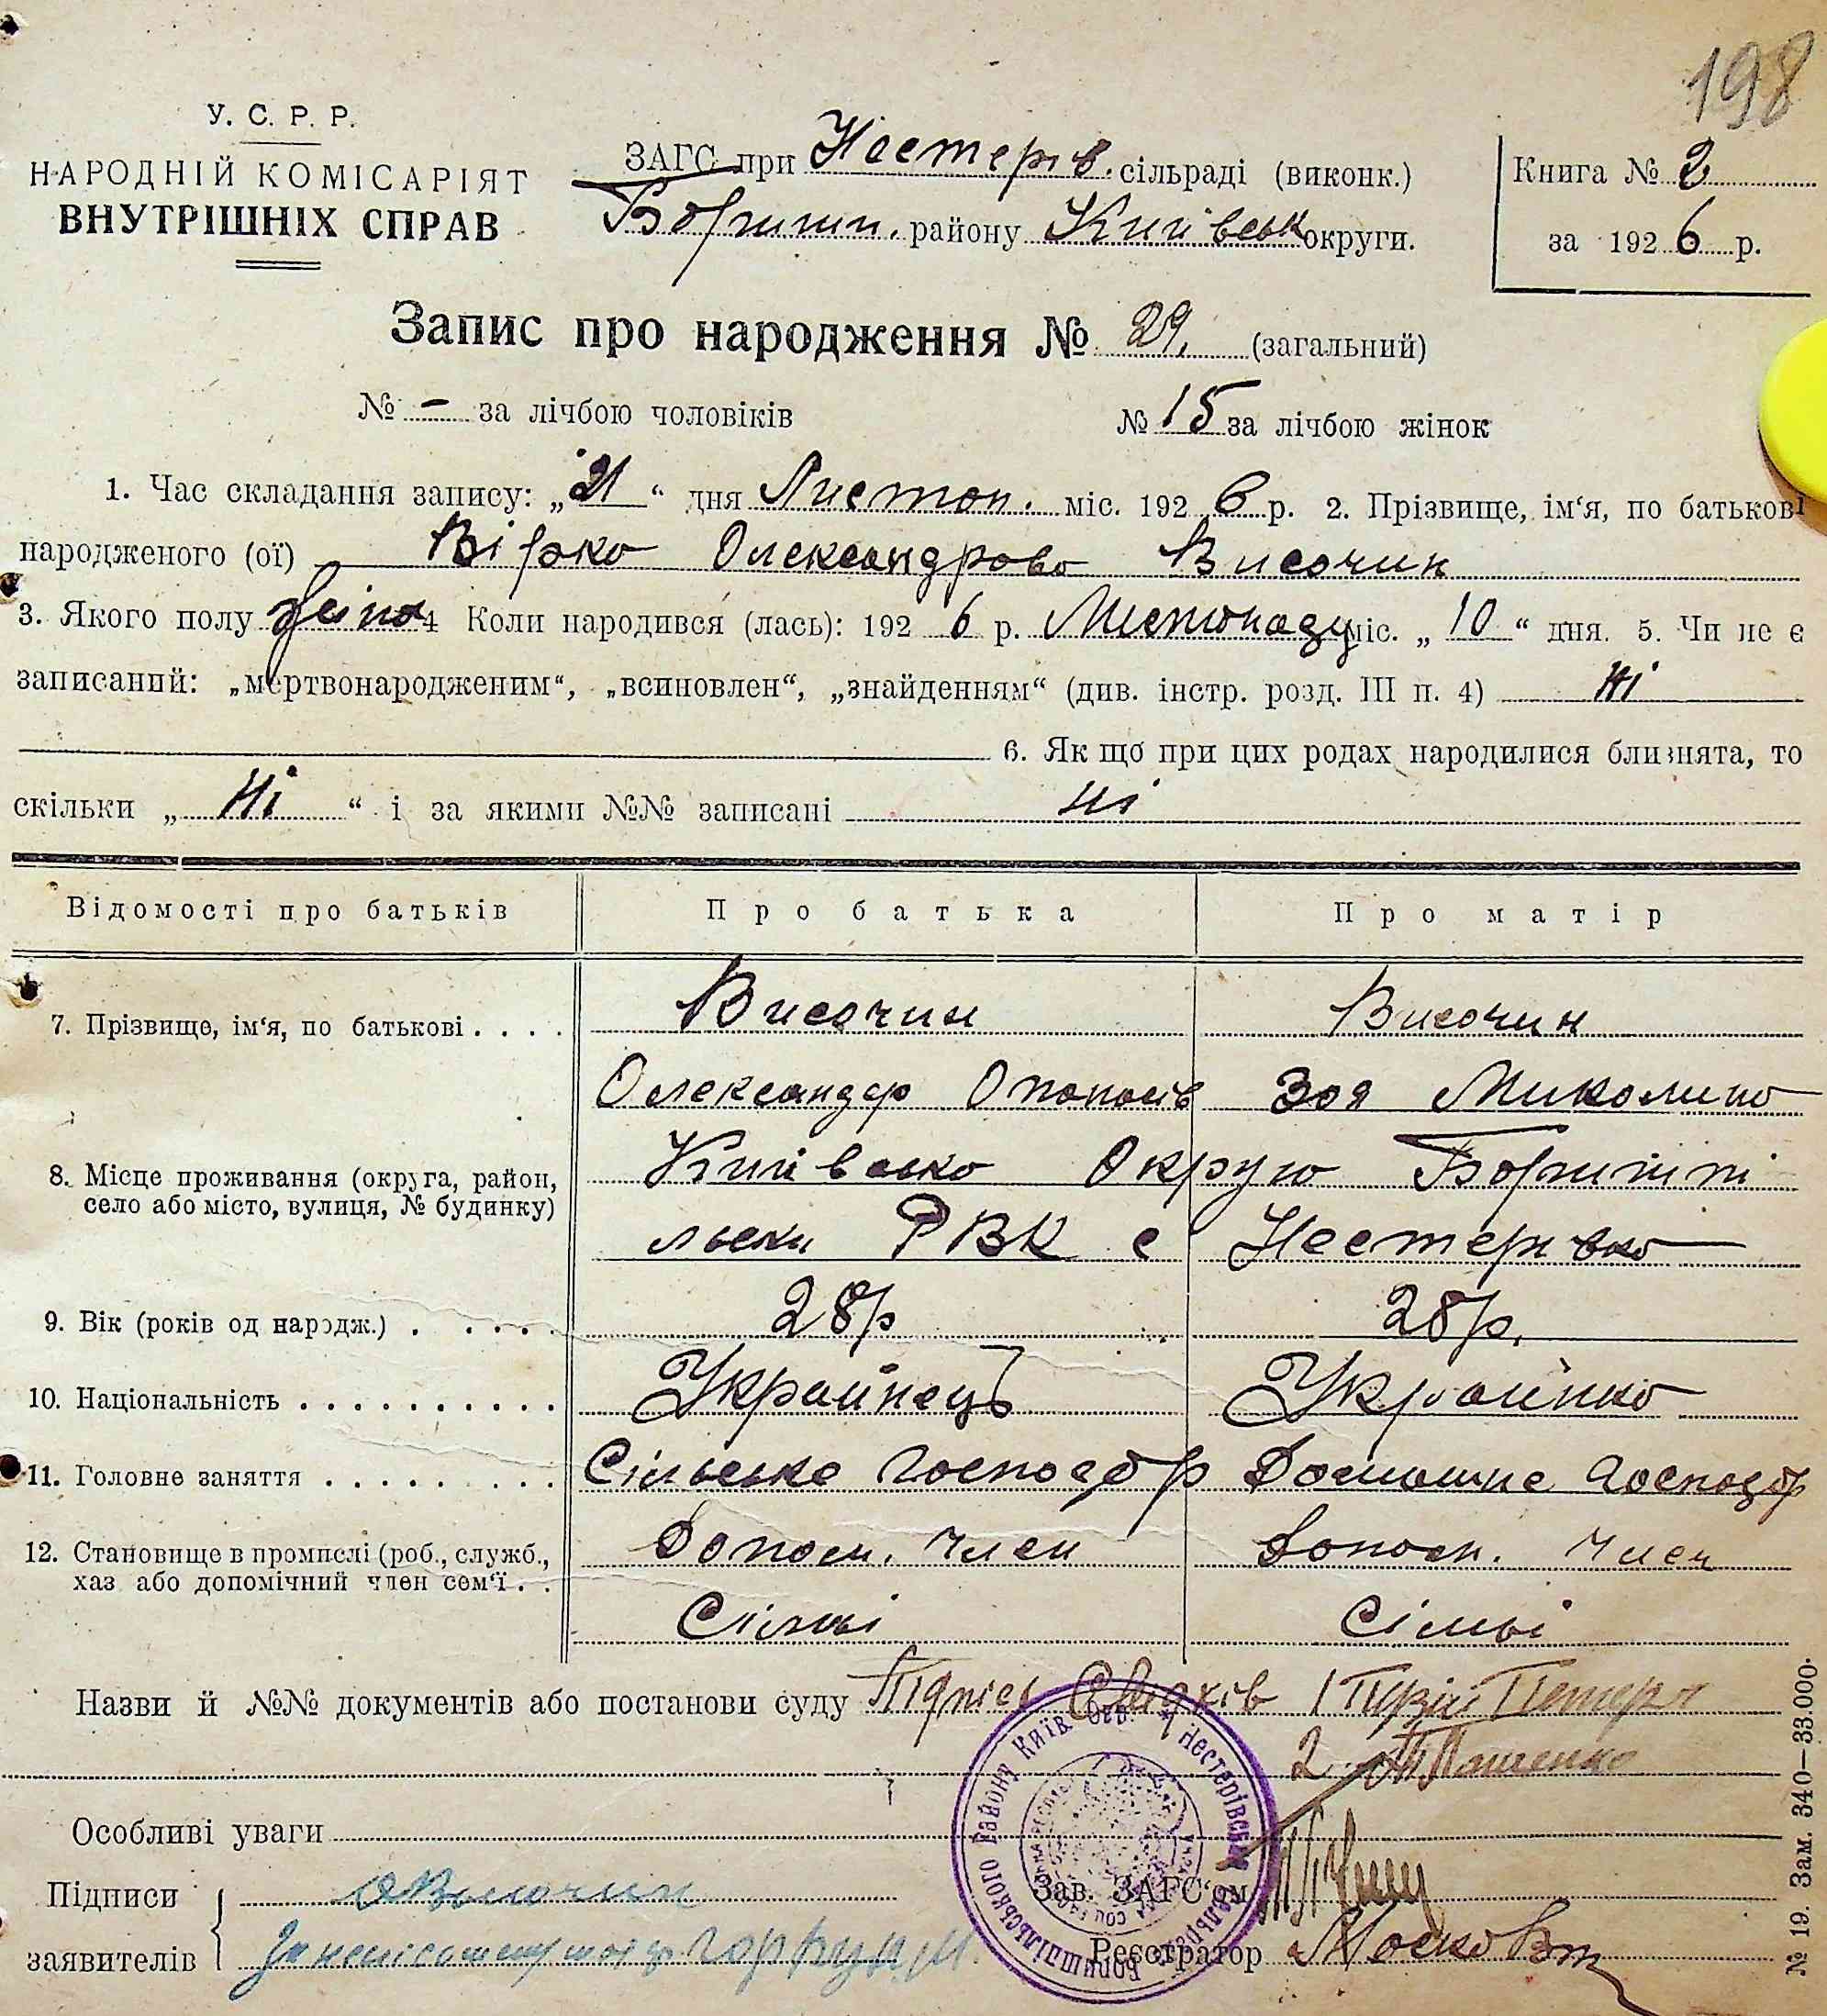 198
У. С. Р. Р.
НАРОДНІЙ КОМІСАРІЯТ
ВНУТРІШНІХ СПРАВ
ЗАГС при Нестерів. сільраді (виконк.)
Боришп. району Київськ округи.
Книга № 2
за 1926 р.
Запис про народження № 29. (загальний)
№ - за лічбою чоловіків
№ 15 за лічбою жінок
1. Час складання запису: „21“ дня Листоп. міс. 1926 р. 2. Прізвище, ім‘я, по батькові
народженого (ої) Вірка Олександрова Височин
3. Якого полу жіноч 4 Коли народився (лась): 1926 р. Листопаду міс. „10“ дня. 5. Чи не є
записаний: „мертвонародженим“, „всиновлен“, „знайденням“ (див. інстр. розд. III п. 4) ні
6. Як що при цих родах народилися близнята, то
скільки „ Ні “ і за якими №№ записані ні
Відомості про батьків
Про батька
Про матір
7. Прізвище, ім‘я, по батькові . . . .
Височин
Височин
Олександер Опанасів
Зоя Миколина
8. Місце проживання (округа, район,
село або місто, вулиця, № будинку)
Київська Округа Боришпі
льськ РВК с Нестерівка
9. Вік (років од народж.) . . . . .
28 р
28 р.
10. Національність . . . . . . . . . .
Українець
Українка
11. Головне заняття . . . . . . . .
Сільське господар
Домашнє господар
12. Становище в промислі (роб., служб.,
хаз або допомічний член сем‘ї . .
Допом. Член
Допом. Член
Сімьї
Сімьї
Назви й №№ документів або постанови суду Підпісь Свідків 1
2
Особливі уваги
Підписи
заявителів
АВысочин
Зав. ЗАГС‘ом
Реєстратор
Нестерівська сільрада Боришпільського району Київ. Окр.
№ 19. Зам. 340—33.000.